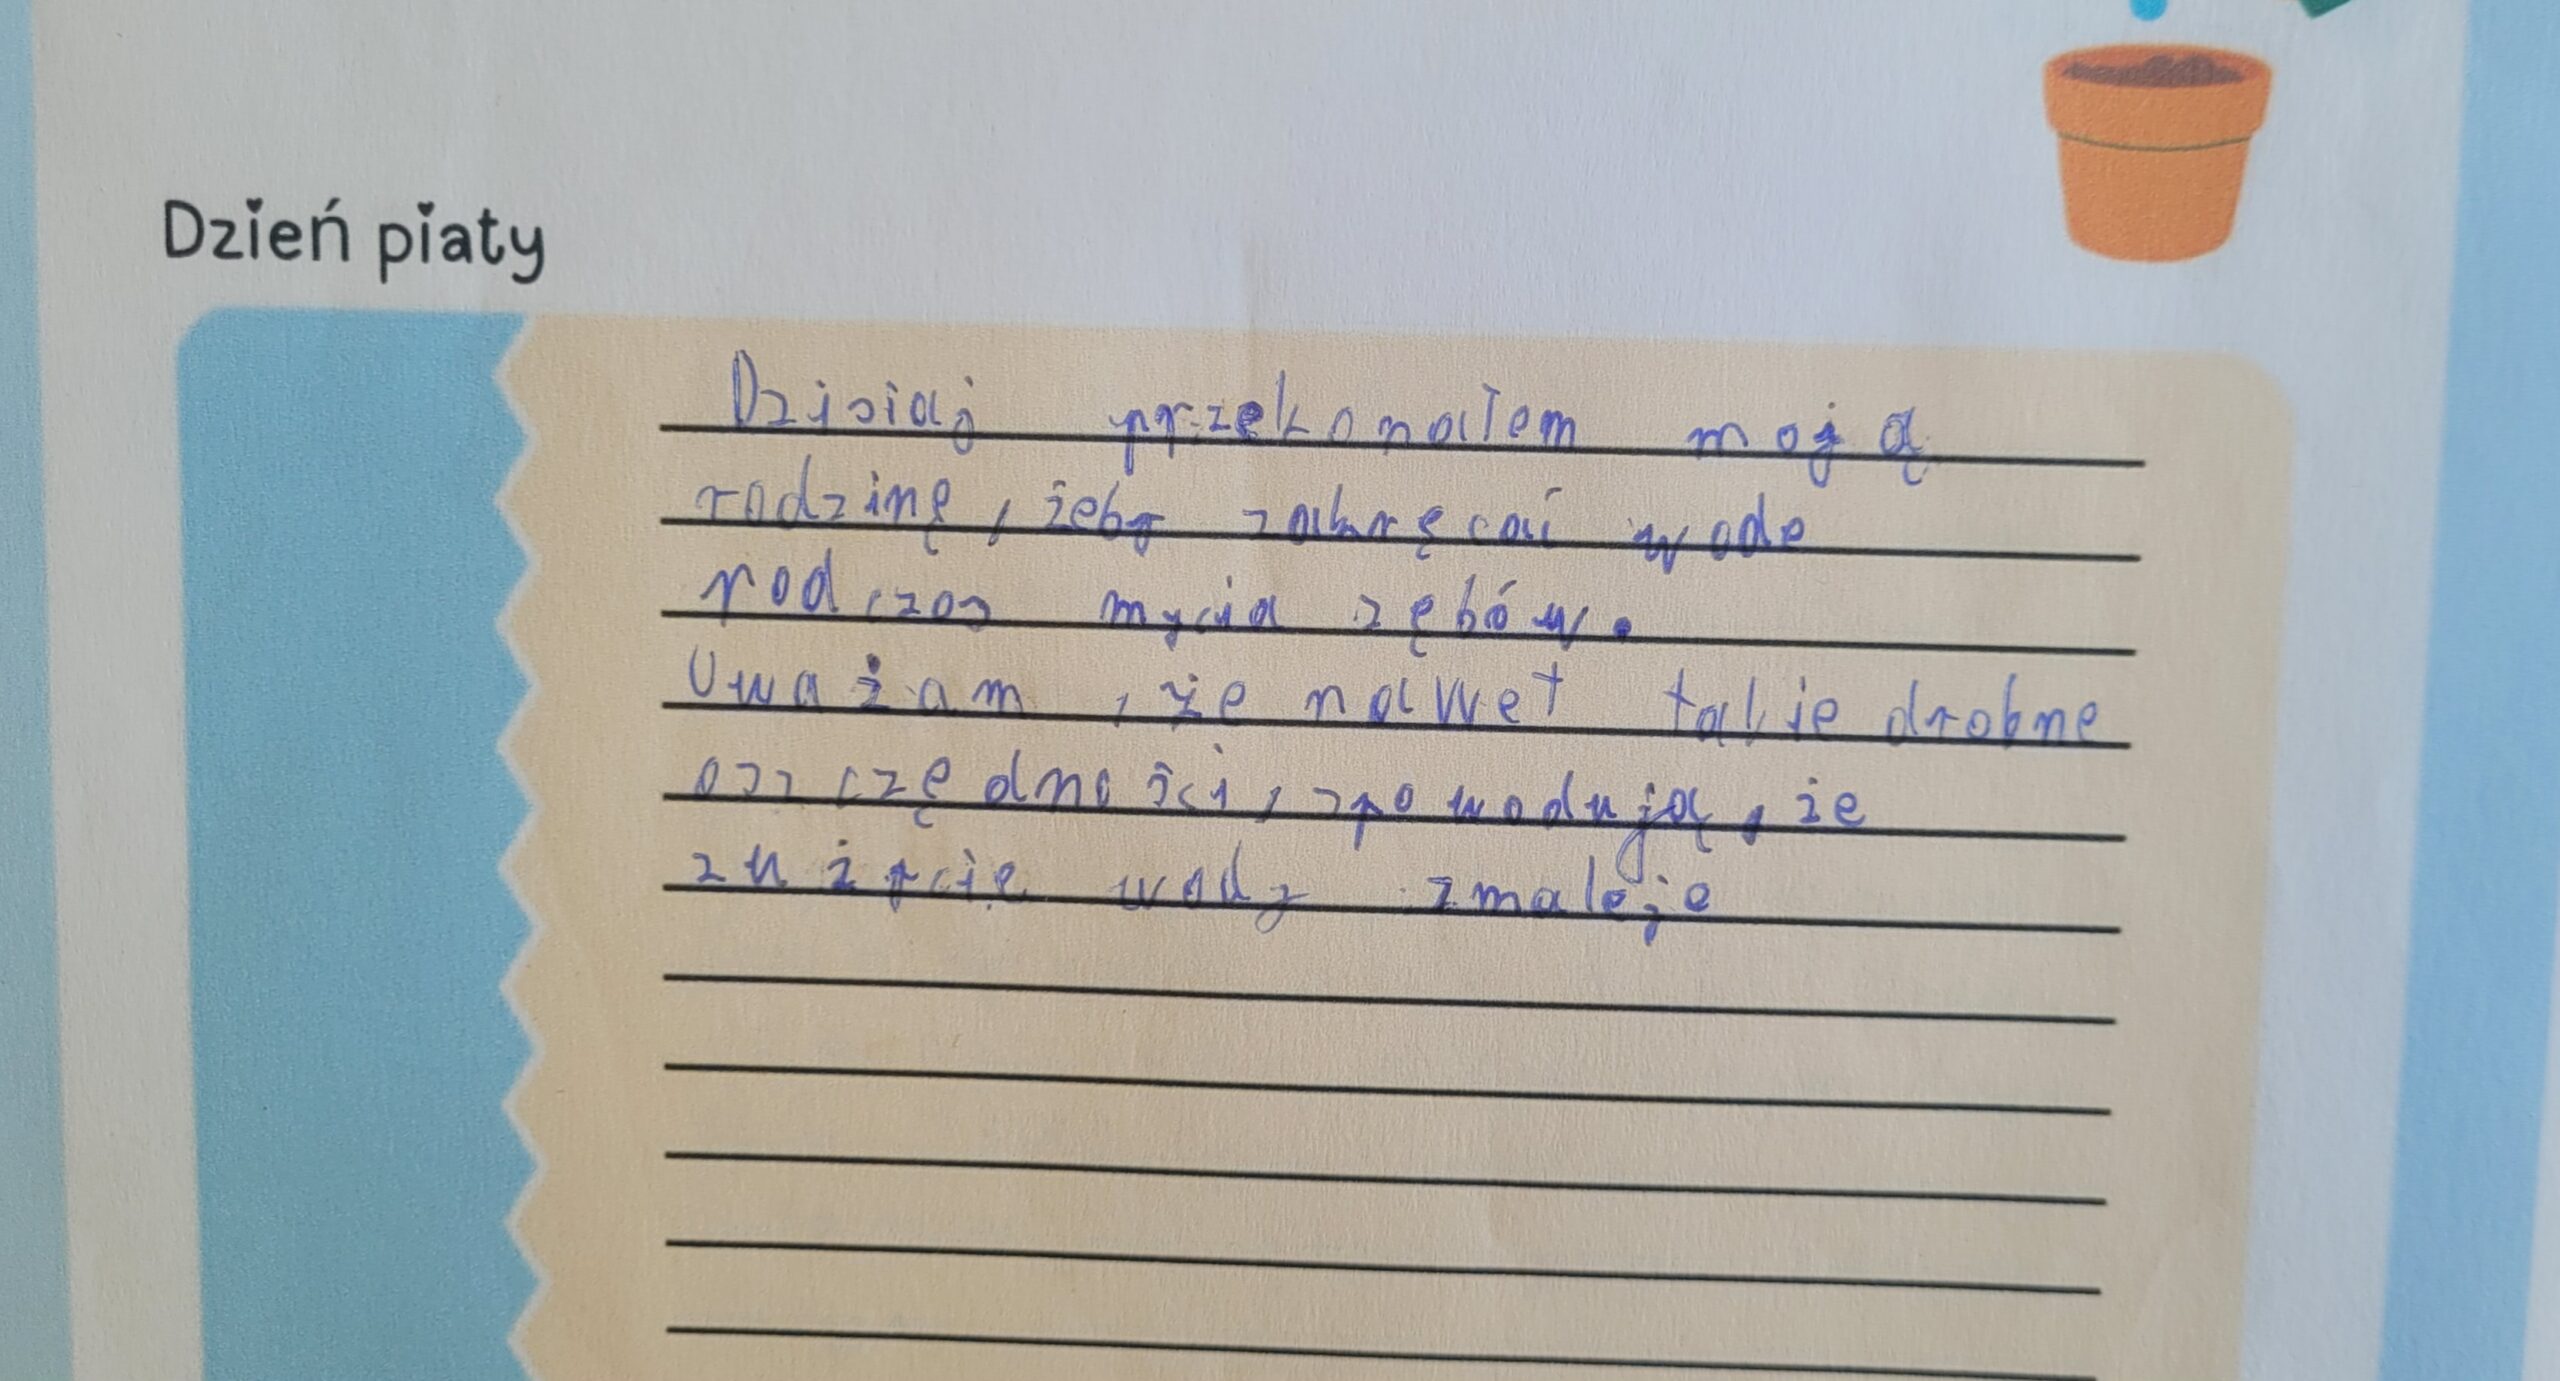 Dzień piaty
Dzisiaj przekonałem moją
rodzinę, żeby zakręcać wode
podczas mycia zębów.
Uważam, że nawet takie drobne
oszczędności, spowodują, że
zużycie wody zmaleje